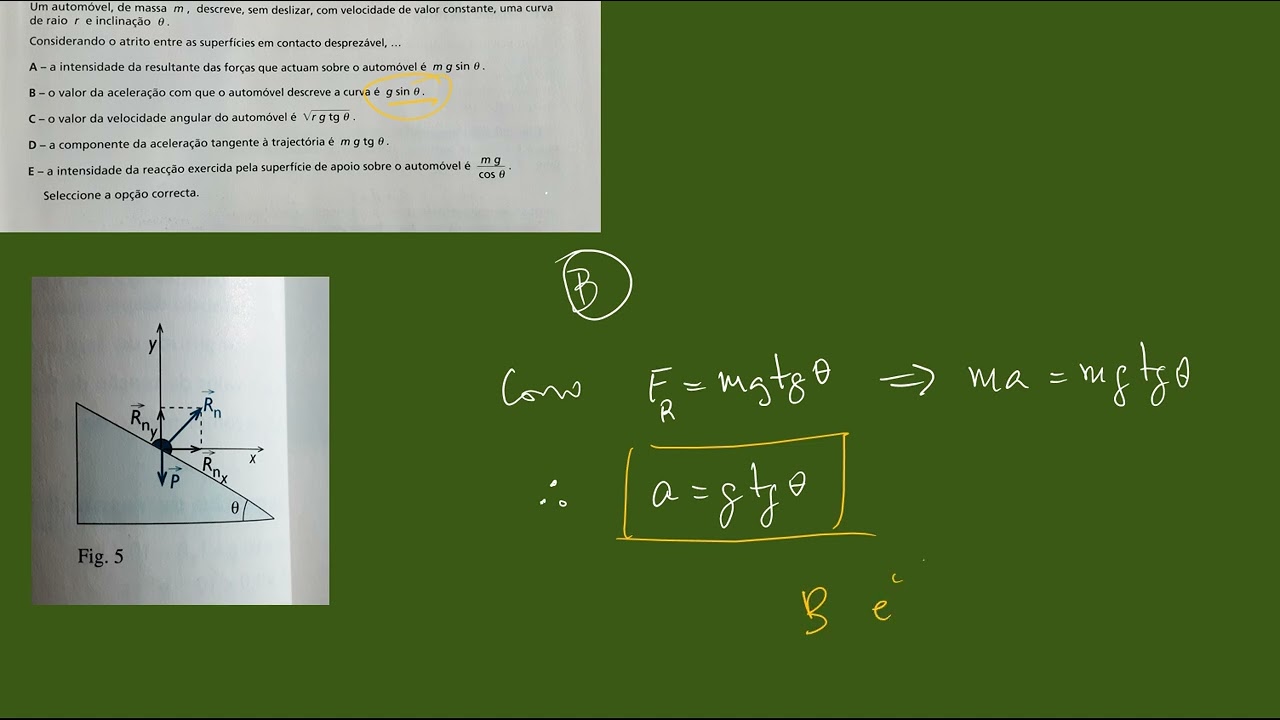 Um automóvel, de massa m, descreve, sem deslizar, com velocidade de valor constante, uma curva
de raio r e inclinação θ.
Considerando o atrito entre as superfícies em contacto desprezável, ...
A – a intensidade da resultante das forças que actuam sobre o automóvel é m g sin θ.
B – o valor da aceleração com que o automóvel descreve a curva é g sin θ.
C – o valor da velocidade angular do automóvel é √(r g tg θ).
D – a componente da aceleração tangente à trajectória é m g tg θ.
E – a intensidade da reacção exercida pela superfície de apoio sobre o automóvel é m g / cos θ.
Seleccione a opção correcta.
B
Como F_R = mg tg θ ⇒ ma = mg tg θ
∴ a = g tg θ
B é
y
R⃗n
R⃗n_y
x
R⃗n_x
P⃗
θ
Fig. 5